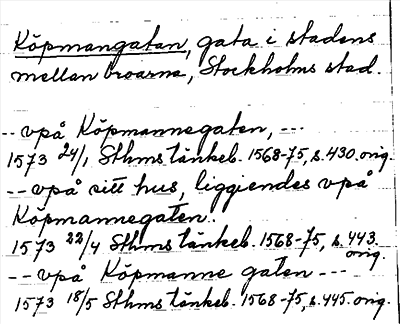 Köpmangatan, gata i stadens
mellan broarna, Stockholms stad.
-- vpå Köpmannegaten, ---
1573 24/1 Sthms tänkeb. 1568-75, s. 430 orig.
-- vpå sitt hus, liggiendes vpå
Köpmannegaten.
1573 22/4 Sthms tänkeb. 1568-75, s. 443 orig.
-- vpå Köpmanne gaten ---
1573 18/5 Sthms tänkeb. 1568-75, s. 445 orig.